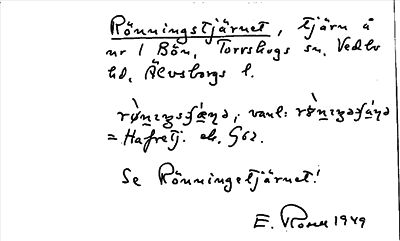 Rönningstjärnet, tjärn å
nr 1 Bön, Torrskogs sn, Vedbo
hd, Älvsborgs l.
vanl:
= Hafretj. ek. G62.
Se Rönningetjärnet!
E. Rosell 1949